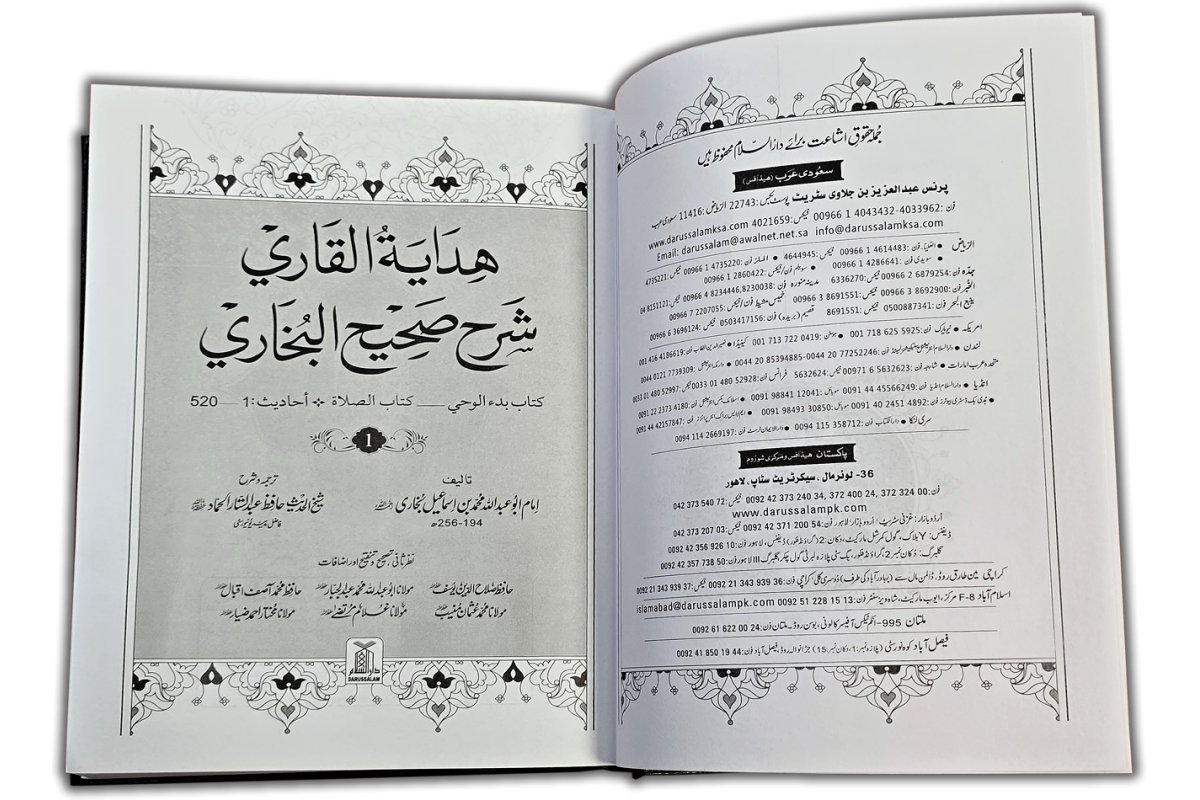 هِدَايَةُ القَارِي
شَرح صَحِيح البُخَارِي
کتاب بدء الوحي ___ كتاب الصلاة ❖ أحاديث: 1 — 520
1
تالیف
امام ابو عبداللہ محمد بن اسماعیل بخاری رحمہ اللہ
194-256ھ
ترجمہ و شرح
شیخ الحدیث حافظ عبدالستار الحماد
نظر ثانی، تصحیح و تنقیح اور اضافات
حافظ صلاح الدین یوسف مولانا ابو عبداللہ محمد عبدالجبار حافظ محمد آصف اقبال
مولانا محمد عثمان منیب مولانا غلام مرتضیٰ مولانا مختار احمد ضیاء
دارالسلام
DARUSSALAM
جملہ حقوق اشاعت برائے دارالسلام محفوظ ہیں
سعودی عرب (هیڈ آفس)
پرنس عبدالعزیز بن جلاوی سٹریٹ پوسٹ بکس: 22743 الریاض: 11416 سعودی عرب
فون: 00966 1 4043432-4033962 فیکس: 4021659 www.darussalamksa.com
Email: darussalam@awalnet.net.sa info@darussalamksa.com
الریاض • العلیا فون: 00966 1 4614483 فیکس: 4644945 • الملز فون: 00966 1 4735220 فیکس: 4735221
• سویدی فون: 00966 1 4286641 • سویلم فون/فیکس: 00966 1 2860422
جدہ فون: 00966 2 6879254 فیکس: 6336270 مدینہ منورہ فون: 00966 4 8234446,8230038 فیکس: 04 8151121
الخبر فون: 00966 3 8692900 فیکس: 00966 3 8691551 خمیس مشیط فون/فیکس: 00966 7 2207055
ینبع البحر فون: 0500887341 فیکس: 8691551 قصیم (بریدہ) فون: 0503417156 فیکس: 00966 6 3696124
امریکہ • نیویارک فون: 001 718 625 5925 • ہوسٹن: 001 713 722 0419 کینیڈا • نصیرالدین الخطاب فون: 001 416 4186619
لندن • دارالسلام انٹرنیشنل پبلیکیشنز لیمیٹڈ فون: 0044 20 77252246-0044 20 85394885 • دارمکہ انٹرنیشنل: 0044 0121 7739309
متحدہ عرب امارات • شارجہ فون: 00971 6 5632623 فیکس: 5632624 فرانس فون: 0033 01 480 52928 فیکس: 0033 01 480 52997
انڈیا • دارالسلام انڈیا فون: 0091 44 45566249 موبائل: 0091 98841 12041 • اسلامک بکس انٹرنیشنل فون: 0091 22 2373 4180
• ہدیٰ بک ڈسٹری بیوٹرز فون: 0091 40 2451 4892 موبائل: 0091 98493 30850 فون: 0091 44 42157847
سری لنکا • دارالکتاب فون: 0094 115 358712 • دارالایمان ٹرسٹ فون: 0094 114 2669197
پاکستان هیڈ آفس و مرکزی شوروم
36- لوئرمال، سیکرٹریٹ سٹاپ، لاهور
فون: 0092 42 373 240 34, 372 400 24, 372 324 00 فیکس: 042 373 540 72
www.darussalampk.com
اُردو بازار: غزنی سٹریٹ، اُردو بازار، لاہور فون: 0092 42 371 200 54 فیکس: 042 373 207 03
ڈیفنس: Y بلاک، گول کمرشل مارکیٹ، دکان: 2 (گراؤنڈ فلور) ڈیفنس، لاہور فون: 0092 42 356 926 10
گلبرگ: دکان نمبر 2، گراؤنڈ فلور، بگ سٹی پلازہ لبرٹی گول چکر، گلبرگ III لاہور فون: 0092 42 357 738 50
کراچی مین طارق روڈ، ڈالمن مال سے (بہادر آباد کی طرف) دوسری گلی کراچی فون: 0092 21 343 939 36 فیکس: 0092 21 343 939 37
اسلام آباد F-8 مرکز، ایوب مارکیٹ، شاہ ویز سنٹر فون: 0092 51 228 15 13 islamabad@darussalampk.com
ملتان 995- انکم ٹیکس آفیسر کالونی، بوسن روڈ، ملتان فون: 0092 61 622 00 24
فیصل آباد کوہ نور سٹی (پلازہ نمبر: 1، دکان نمبر: 15) جڑانوالہ روڈ، فیصل آباد فون: 0092 41 850 19 44